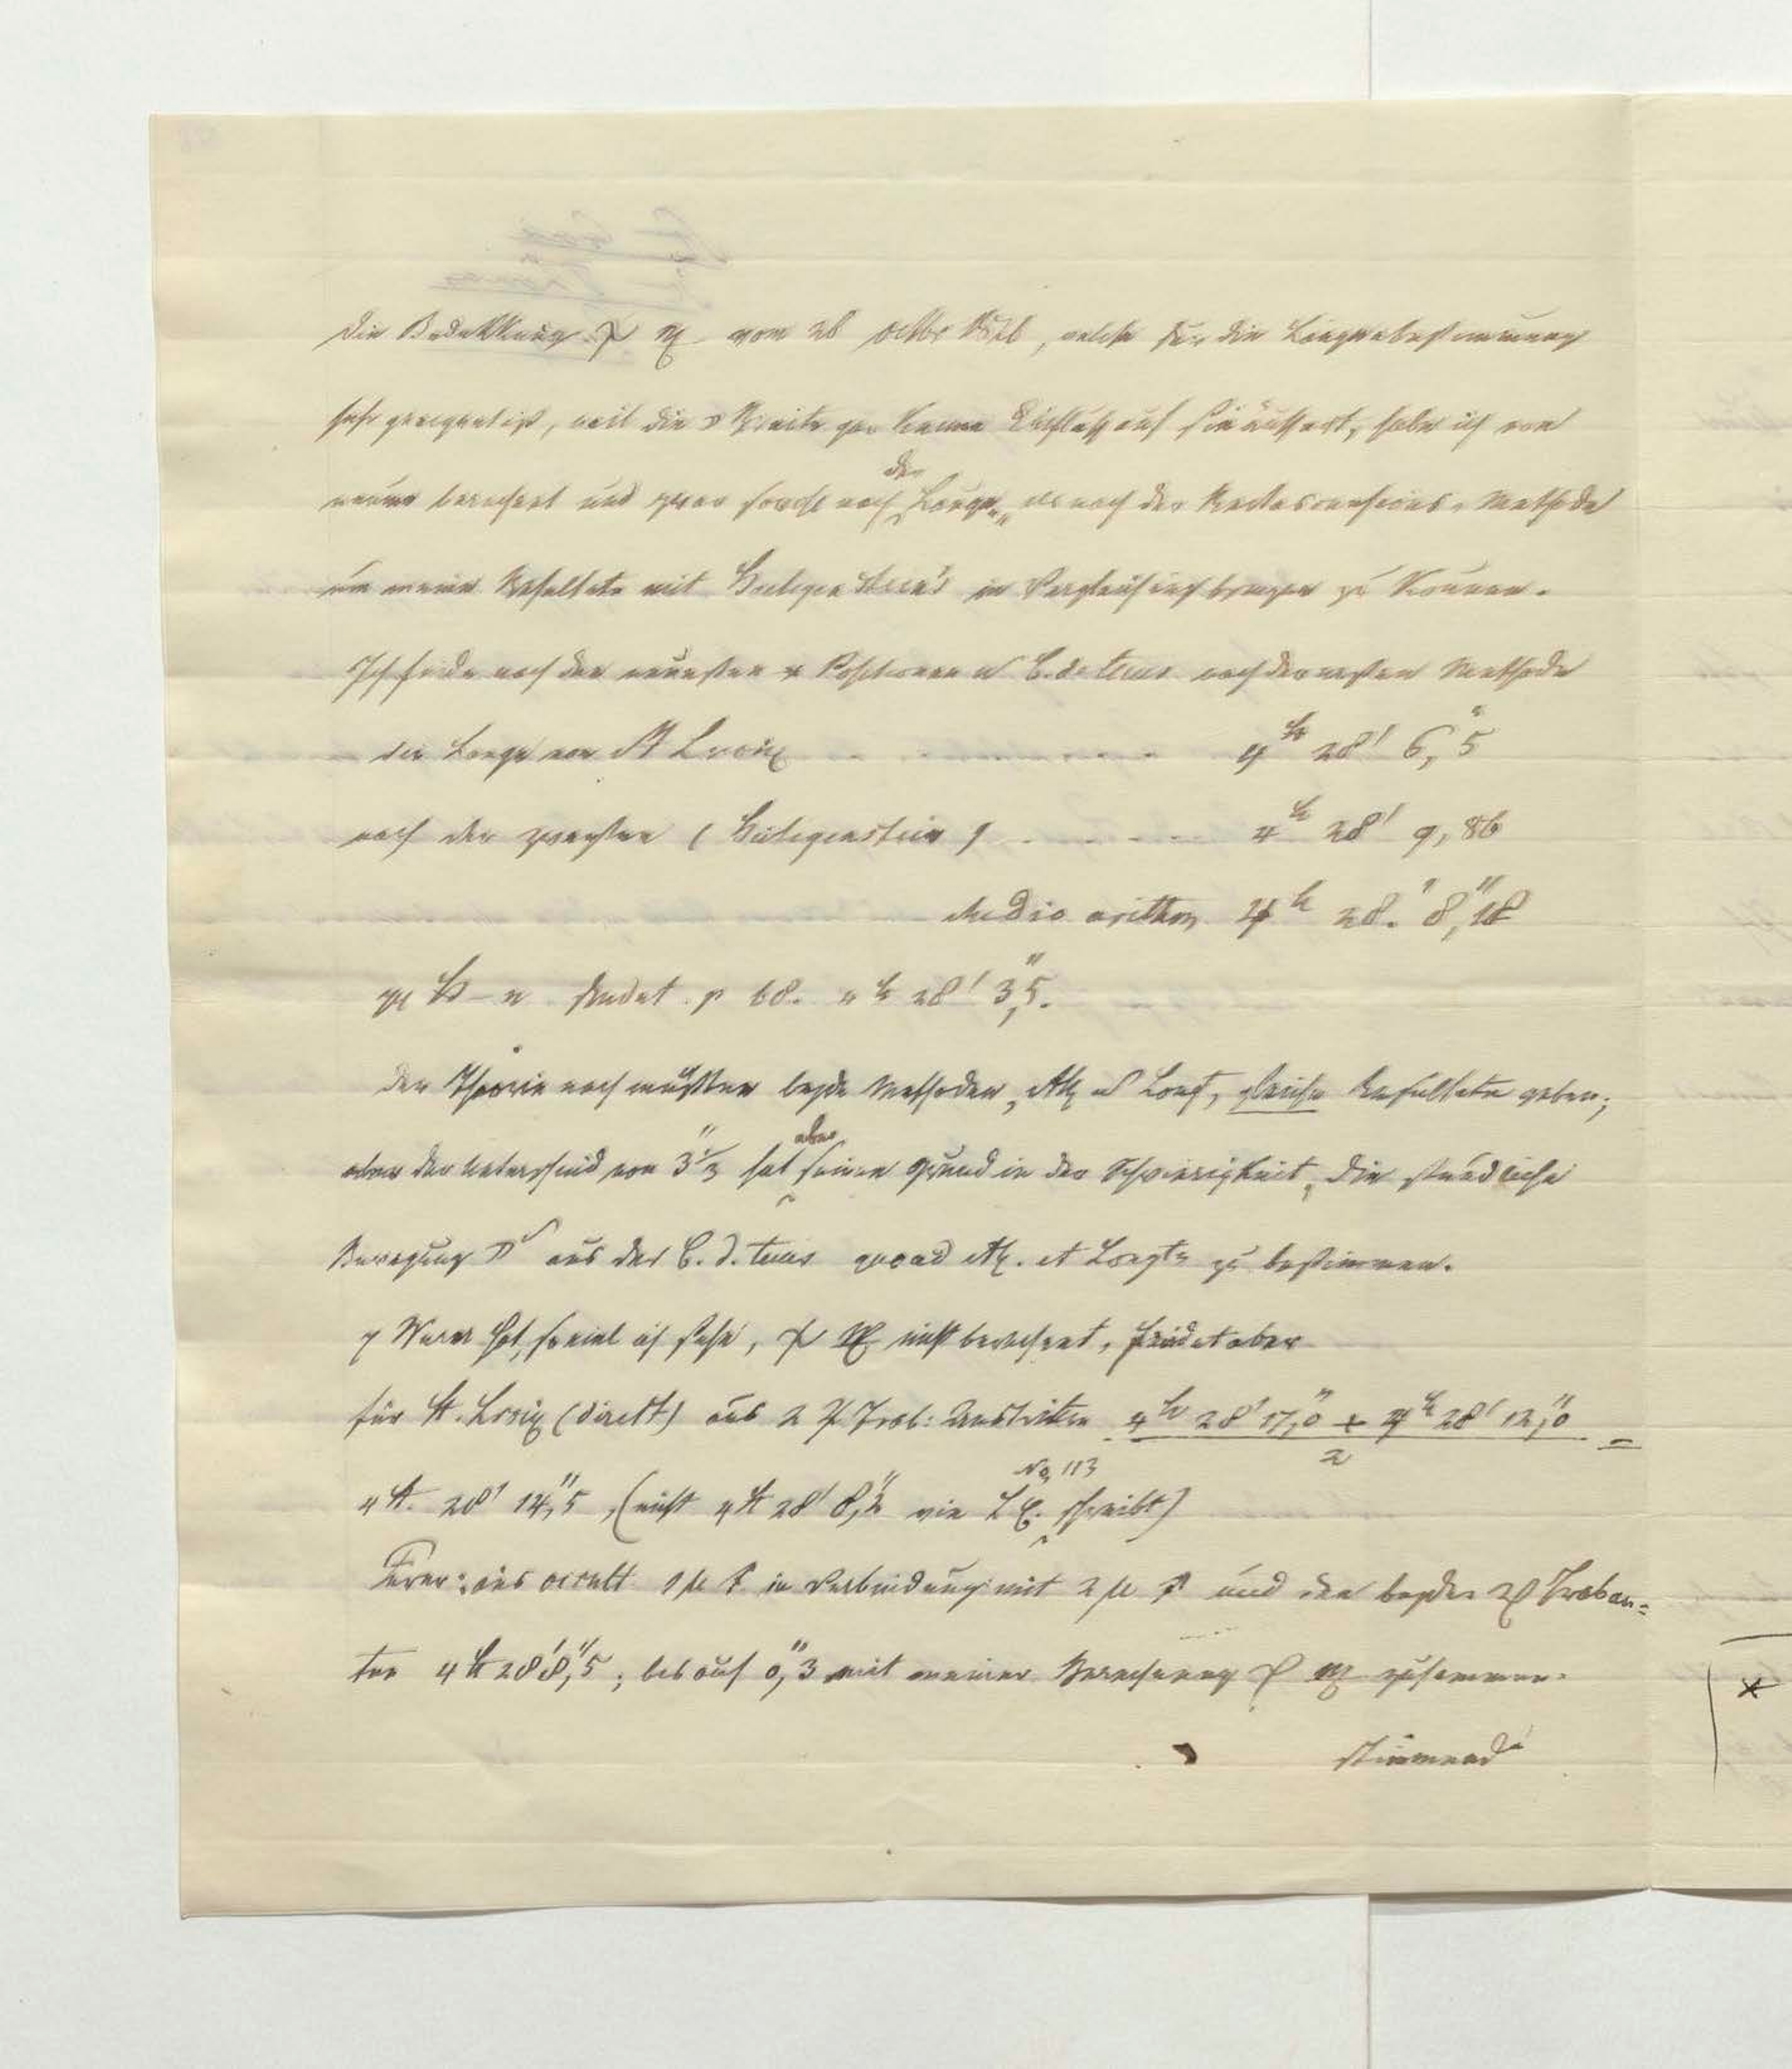 die Bedekkung φ ♍ vom 26 octbr 1826, welche für die Längenbestimmung
sehr geeignet ist, weil die ☽ Breite gar keinen Einfluß auf sie äussert, habe ich von
neuem berechnet und zwar sowohl nach der Länge, als nach der Rectascensions-Methode
um meine Resultate mit Heiligenstein's in Vergleichung bringen zu können.
Ich finde nach den neuesten * Positionen u C. d. tems nach der ersten Methode
die Länge von St Croix 4h 28' 6,"5
nach der zweyten (Heiligenstein) 4h 28' 9,86
Medio arithm 4h 28.' 8,"18
H–n findet p 68. 4h 28' 3,"5.
Der Theorie nach müßten beyde Methoden, AR u Long, gleiche Resultate geben;
der Unterschied von 3"⅓ hat aber seinen Grund in der Schwierigkeit, die stündliche
Bewegung ☽ aus der C. d. tems quoad AR. et Longt. zu bestimmen.
Wurm hat, soviel ich sehe, φ ♍ nicht berechnet, findet aber
für St. Croix (direkt) aus 2 ♃ Trab: Austritten 4h 28' 17,"0 + 4h 28' 12,"0 / 2 =
4h. 28' 14,"5, (nicht 4h 28' 8,"2 wie No, 113 schreibt)
Ferner: aus occult 1 μ ♐ in Verbindung mit 2 μ ♐ und den beyden ♃ Traban=
ten 4h 28' 8,"5; bis auf 0,"3 mit meiner Berechnung φ ♍ zusammen-
stimmend
*